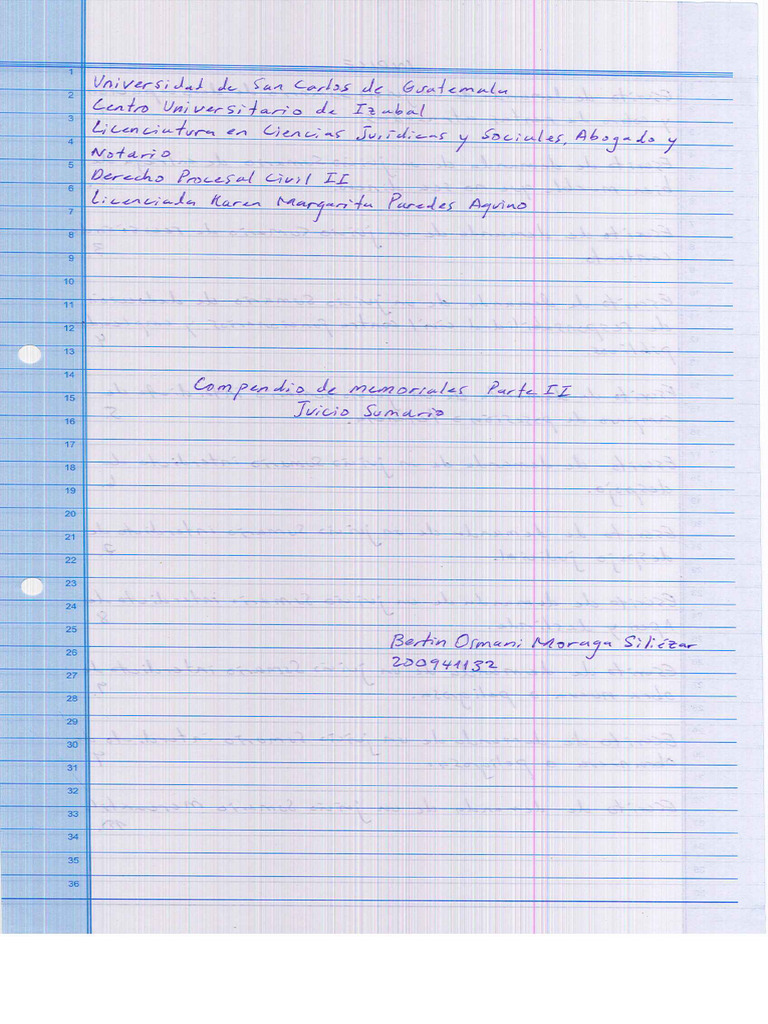 Universidad de San Carlos de Guatemala
Centro Universitario de Izabal
Licenciatura en Ciencias Jurídicas y Sociales, Abogado y
Notario
Derecho Procesal Civil II
Licenciada Karen Margarita Paredes Aquino
Compendio de memoriales Parte II
Juicio Sumario
Bertin Osmani Moraga Siliézar
200941132
1
2
3
4
5
6
7
8
9
10
11
12
13
14
15
16
17
18
19
20
21
22
23
24
25
26
27
28
29
30
31
32
33
34
35
36